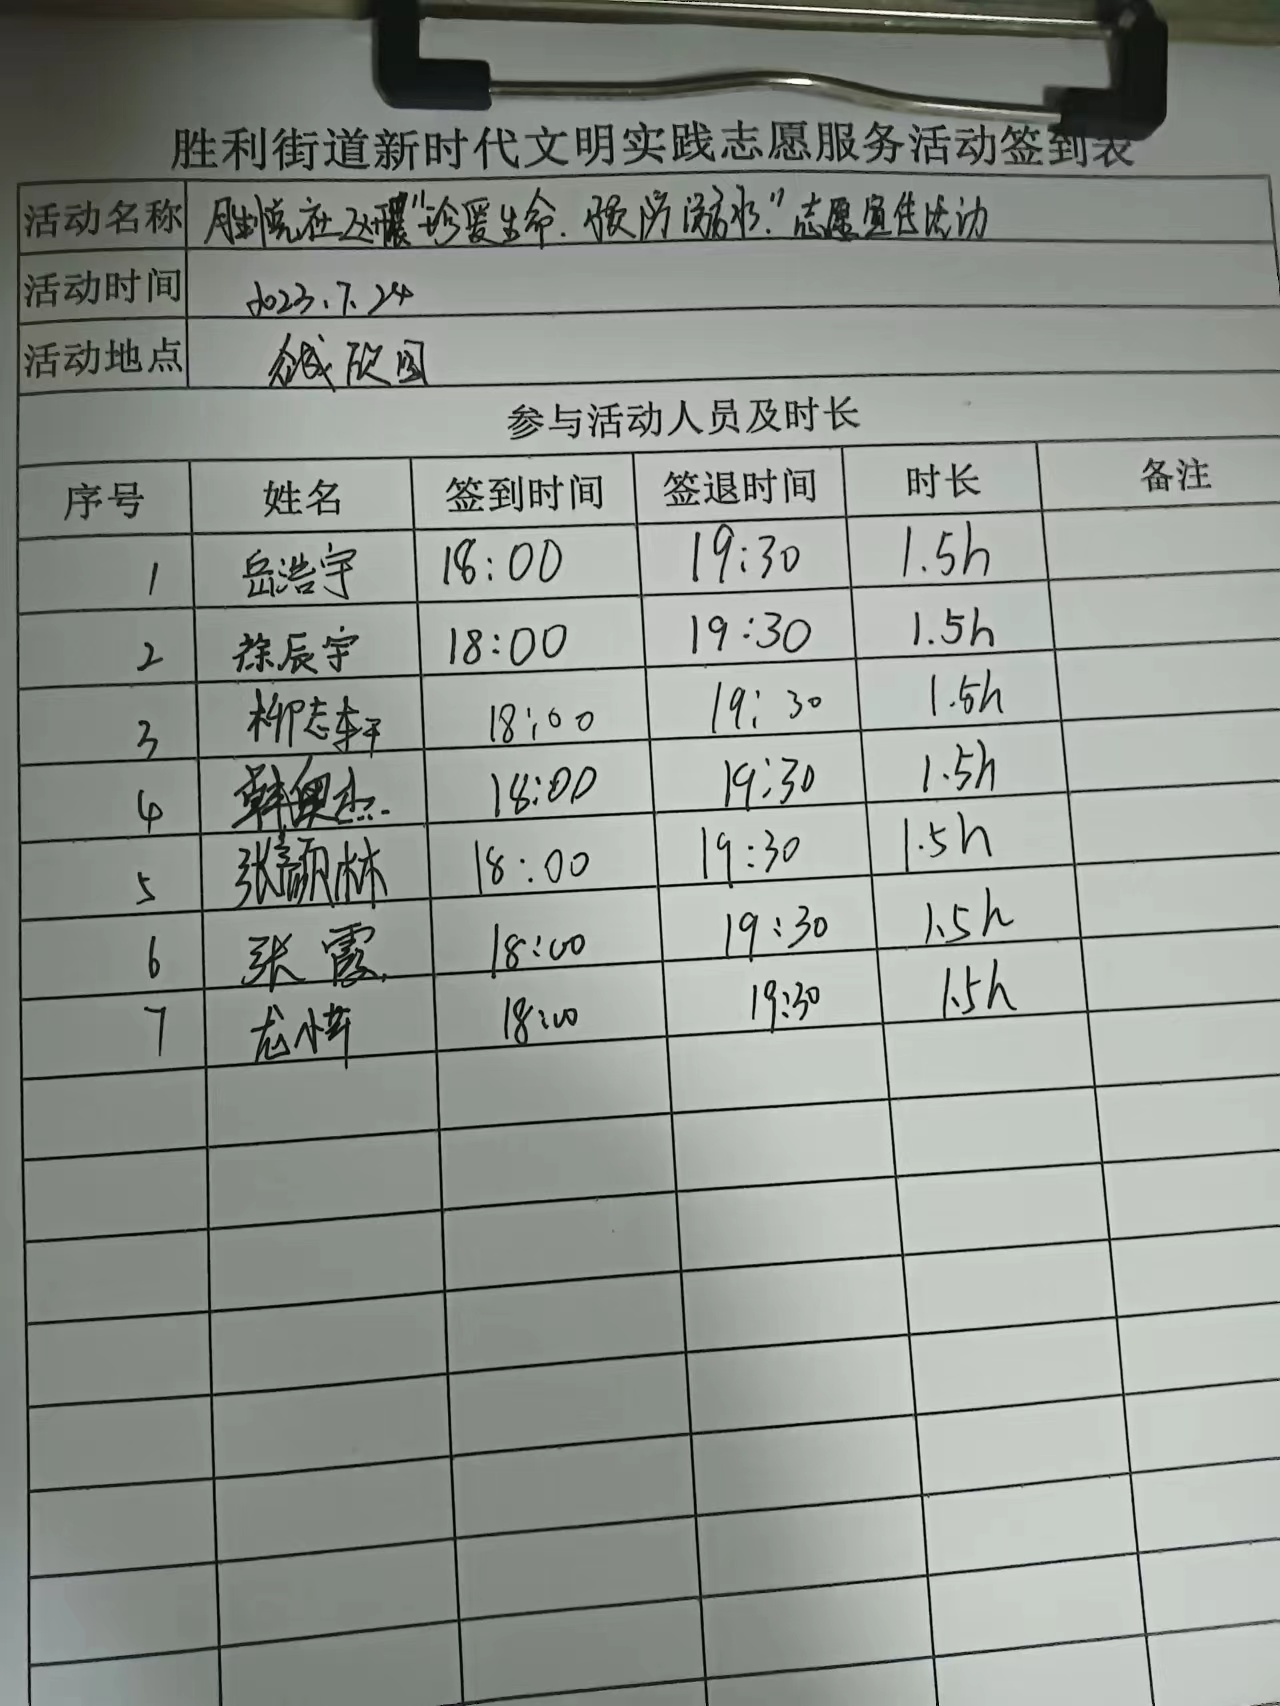 胜利街道新时代文明实践志愿服务活动签到表
活动名称 胜悦社区开展"珍爱生命.预防溺水."志愿宣传活动
活动时间 2023.7.24
活动地点 欣园
参与活动人员及时长
序号 姓名 签到时间 签退时间 时长 备注
1 岳浩宇 18:00 19:30 1.5h
2 徐辰宇 18:00 19:30 1.5h
3 柳志轩 18:00 19:30 1.5h
4 韩奥杰 18:00 19:30 1.5h
5 张颜林 18:00 19:30 1.5h
6 张霞 18:00 19:30 1.5h
7 18:00 19:30 1.5h